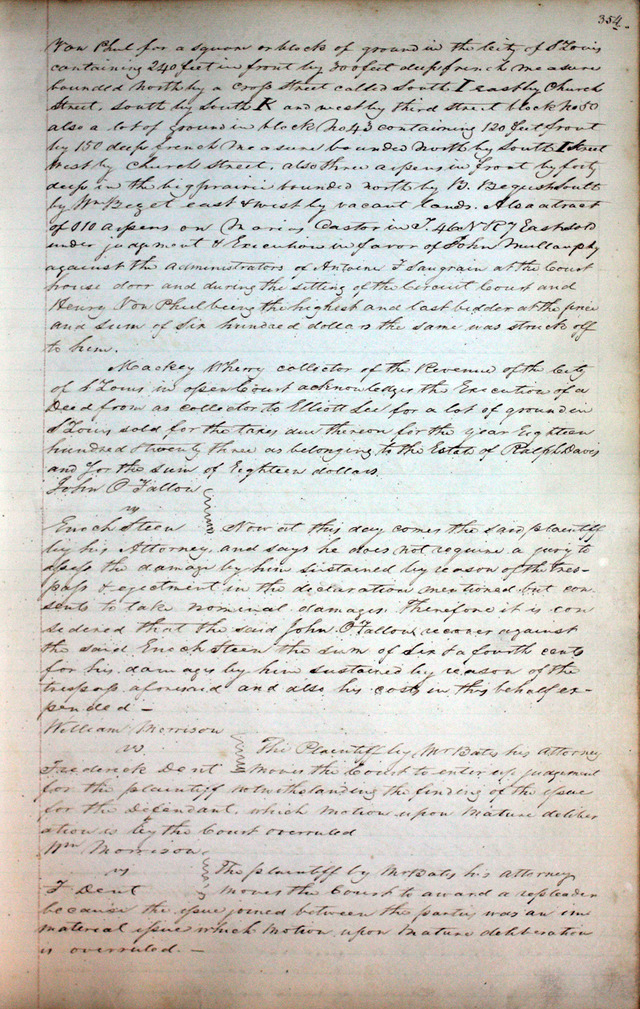 354
Von Phul for a square or block of ground in the City of St Louis
containing 240 feet in front by 300 feet deep french measure
bounded North by a cross Street called South I east by Church
Street, South by South K and west by third street block no 50
also a lot of ground in block No 43 containing 120 feet front
by 150 deep french measure bounded North by South I Street
West by Church Street, also three arpens in front by forty
deep in the big prairie bounded north by B. south
by Wm east & west by vacant lands. Also a tract
of 810 arpens on Marius Castor in T. 46 N R 7 East sold
under judgment & Execution in favor of John Mullanphy
against the administrators of Antoine F Saugrain at the Court
house door and during the sitting of the Circuit Court and
Henry Von Phul being the highest and last bidder at the price
and sum of Six hundred dollars the same was struck off
to him.
Mackey Wherry collector of the Revenue of the City
of St Louis in open Court acknowledges the Execution of a
Deed from as collector to Elliott Lee for a lot of ground in
St Louis sold for the taxes due thereon for the year Eighteen
hundred & twenty three as belonging to the Estate of Ralph Davis
and for the sum of Eighteen dollars
John O Fallon
vs
Enoch Steen Now at this day comes the said plaintiff
by his Attorney, and says he does not require a jury to
assess the damage by him sustained by reason of the tres-
pass & ejectment in the declaration mentioned but con
sents to take nominal damages. Therefore it is con
sidered that the said John O Fallon, recover against
the said Enoch Steen the sum of Six & a fourth cents
for his damages by him sustained by reason of the
trespass aforesaid and also his costs in this behalf ex-
pended -
William Morrison
vs
Frederick Dent The Plaintiff by Mr Bates his Attorney
moves the Court to enter up judgement
for the plaintiff notwithstanding the finding of the issue
for the Defendant, which motion upon mature deliber
ation is by the Court overruled
Wm Morrison
vs
F Dent The plaintiff by Mr Bates his attorney
moves the Court to award a repleader
because the issue joined between the parties was an im
material issue which motion upon mature deliberation
is overruled. -